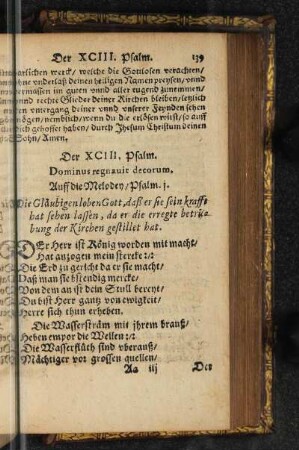 Der XCIII. Psalm. 139
barlichen werck/ welche die Gottlosen verachten/
vnderlaß deinen heiligen Namen preysen/ vnnd
massen im guten vnnd aller tugend zunemmen/
vnnd rechte Glieder deiner Kirchen bleiben/ letzlich
vntergang deiner vnnd vnserer Feynden sehen
mögen/ nemblich/ wenn du die erlösen wirst/ so auff
dich gehoffet haben/ durch Jhesum Christum deinen
Sohn/ Amen.
Der XCIII. Psalm.
Dominus regnauit decorum.
Auff die Melodey/ Psalm.
Die Gläubigen loben Gott, daß er sie sein krafft
hat sehen lassen, da er die erregte betrüa-
bung der Kirchen gestillet hat.
Er Herr ist König worden mit macht/
Hat anzogen mein stercke :/:
Die Erd zu gericht da er sie macht/
Daß man sie bstendig mercke/
Von dem an ist dein Stull bereyt/
Du bist Herr gantz von ewigkeit/
Herre sich thun erheben.
Die Wasserström mit jhrem brauß/
Heben empor die Wellen :/:
Die Wasserflüth sind vberauß/
Mächtiger vor grossen quellen/
Aa iij Der